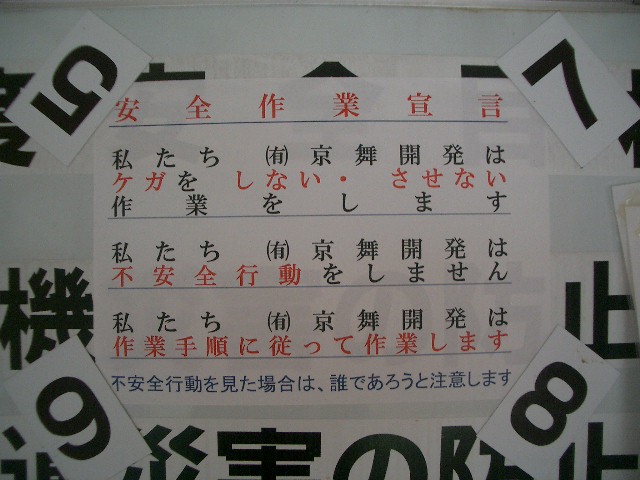 5
7
安全作業宣言
私たち ㈲京舞開発は
ケガを しない・ させない
作業をします
私たち ㈲京舞開発は
不安全行動をしません
私たち ㈲京舞開発は
作業手順に従って作業します
不安全行動を見た場合は、誰であろうと注意します
機
止
9
8
災害の防止